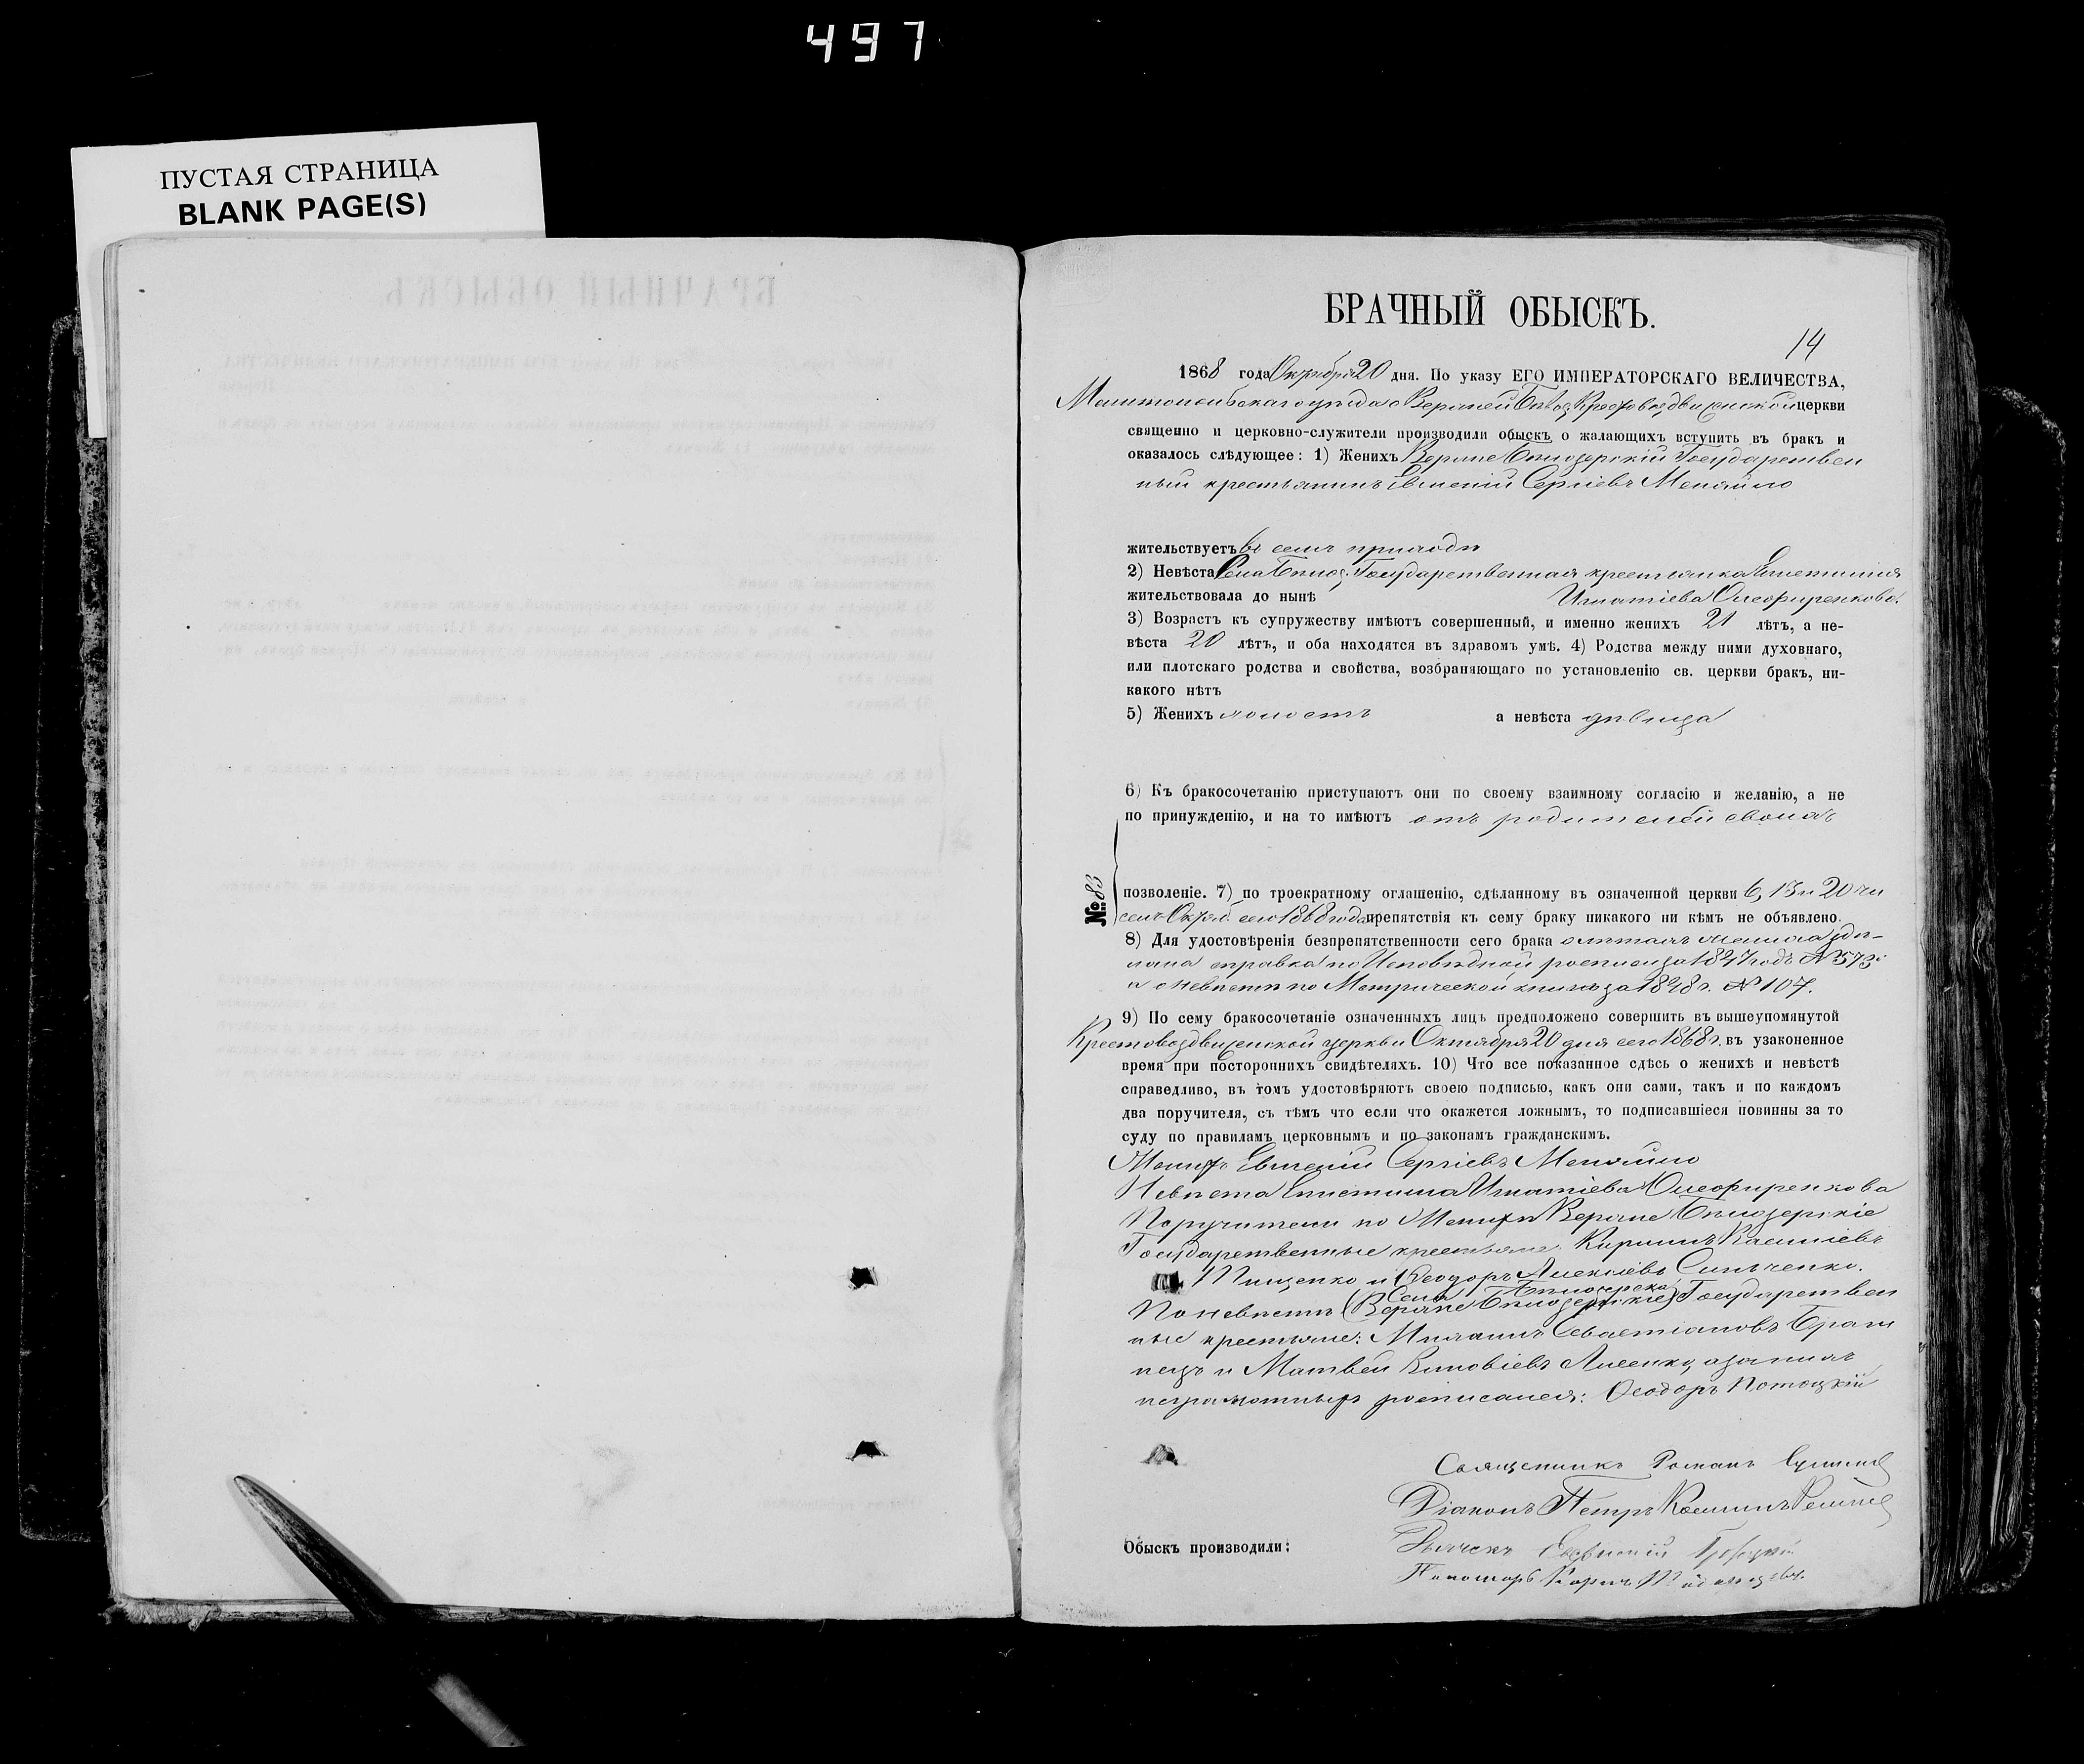 497
ПУСТАЯ СТРАНИЦА
BLANK PAGE(S)
БРАЧНЫЙ ОБЫСКЪ.
14
1868 года Октября 20 дня. По указу ЕГО ИМПЕРАТОРСКАГО ВЕЛИЧЕСТВА,
Мелитопольскаго уѣзда с Верхней Бѣлоз. Крестовоздвиженской церкви
священно и церковно-служители производили обыскъ о жалающихъ вступить въ бракъ и
оказалось слѣдующее: 1) Женихъ Верхне Бѣлозерскій Государствен
ный крестьянинъ Евгеній Сергіевъ Меняйло
жительствуетъ въ семъ приходѣ
2) Невѣста Села Бѣлоз. Государственная крестьянка Епистимія
жительствовала до нынѣ Игнатіева Олефиренкова.
3) Возрастъ къ супружеству имѣютъ совершенный, и именно женихъ 21 лѣтъ, а не-
вѣста 20 лѣтъ, и оба находятся въ здравомъ умѣ. 4) Родства между ними духовнаго,
или плотскаго родства и свойства, возбраняющаго по установленію св. церкви бракъ, ни-
какого нѣтъ
5) Женихъ холостъ а невѣста дѣвица
6) Къ бракосочетанію приступаютъ они по своему взаимному согласію и желанію, а не
по принужденію, и на то имѣютъ отъ родителей своихъ
№ 83
позволеніе. 7) по троекратному оглашенію, сдѣланному въ означенной церкви 6, 13 и 20 чи
селъ Октяб. сего 1868 года препятствія къ сему браку никакого ни кѣмъ не объявлено.
8) Для удостовѣренія безпрепятственности сего брака о лѣтахъ жениха сдѣ-
лана справка по Исповѣдной росписи за 1847 годъ № 573
а невѣсты по Метрической книгѣ за 1848 г. № 107.
9) По сему бракосочетаніе означенныхъ лицъ предположено совершить въ вышеупомянутой
Крестовоздвиженской церкви Октября 20 дня сего 1868 г. въ узаконенное
время при постороннихъ свидѣтеляхъ. 10) Что все показанное сдѣсь о женихѣ и невѣстѣ
справедливо, въ томъ удостовѣряютъ своею подписью, какъ они сами, такъ и по каждомъ
два поручителя, съ тѣмъ что если что окажется ложнымъ, то подписавшіеся повинны за то
суду по правиламъ церковнымъ и по законамъ гражданскимъ.
Женихъ Евгеній Сергіевъ Меняйло
Невѣста Епистимія Игнатіева Олефиренкова
Поручители по Женихѣ Верхне Бѣлозерскіе
Государственные крестьяне Кириллъ Василіевъ
Тищенко и Феодоръ Алексіевъ Сильченко.
Села Бѣлозерска
По невѣстѣ (Верхне Бѣлозерскіе) Государствен
ные крестьяне: Михаилъ Севастіановъ Браги
нецъ и Матвей Зиновіевъ Лисенко, а за нихъ
неграмотныхъ росписался: Феодоръ Потоцкій
Священникъ Романъ
Діаконъ Петръ
Обыскъ производили:
Дьячекъ
Пономарь